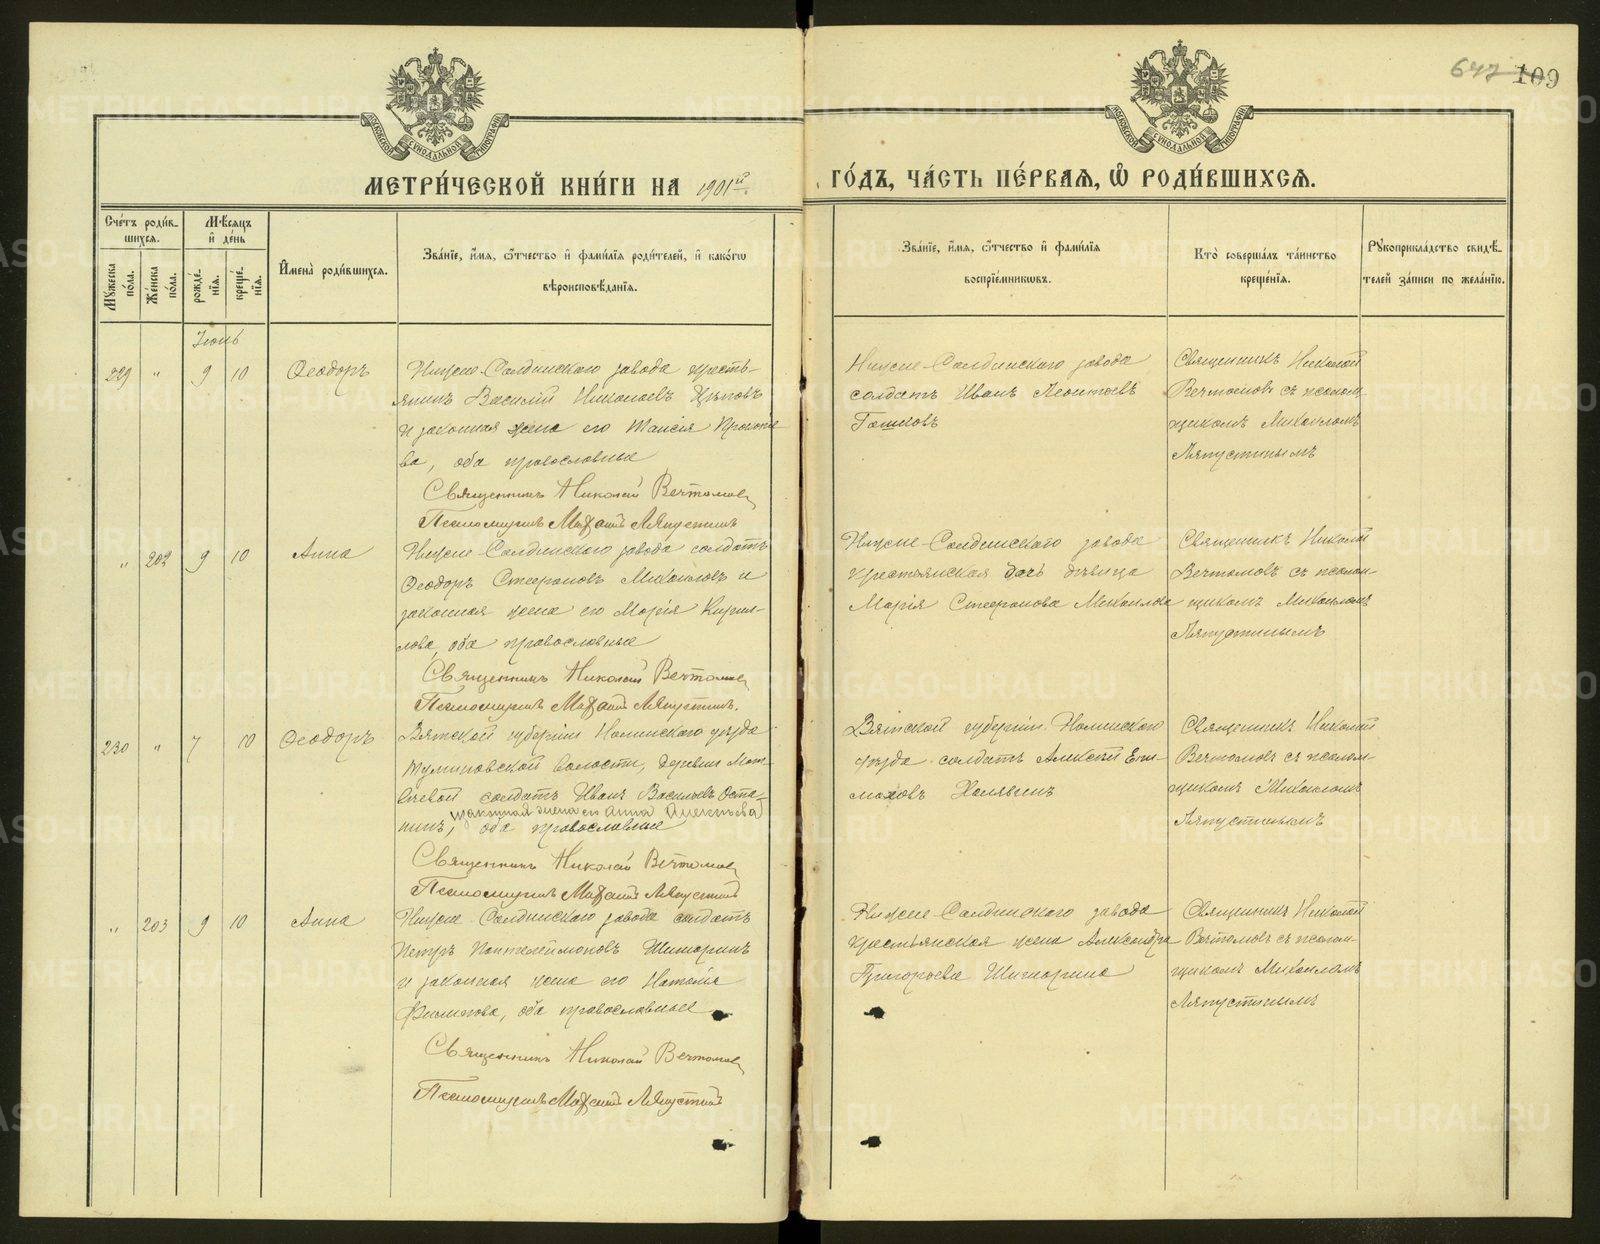 647 109
МЕТРИ́ЧЕСКОЙ КНИ́ГИ НА 1901й
ГО́ДЪ, ЧА́СТЬ ПЕ́РВАѦ, Ѽ РОДИ́ВШИХСѦ.
Сче́тъ роди́в-
шихсѧ.
Мꙋжеска по́ла.
Же́нска по́ла.
Мѣ́сѧцъ
и҆ де́нь
рожде́нїѧ.
креще́нїѧ.
И҆мена̀ роди́вшихсѧ.
Зва́нїе, и҆́мѧ, ѻ҆́тчество и҆ фами́лїѧ роди́телей, и҆ како́гѡ
вѣроисповѣ́данїѧ.
Зва́нїе, и҆́мѧ, ѻ҆́тчество и҆ фами́лїѧ
воспрїе́мникѡвъ.
Кто̀ соверша́лъ та́инство
креще́нїѧ.
Рꙋкоприкла́дство свидѣ́-
телей за́писи по жела́нїю.
Іюнь
229 " 9 10 Ѳеодоръ
Нижне-Салдинскаго завода кресть-
янинъ Василій Николаевъ
и законная жена его Таисія
ва, оба православные
Священникъ Николай Вечтомовъ
Псаломщикъ Михаилъ Ляпустинъ
Нижне-Салдинскаго завода
солдатъ Иванъ Леонтьевъ
Гашковъ
Священникъ Николай
Вечтомовъ съ псалом-
щикомъ Михаиломъ
Ляпустинымъ
" 202 9 10 Анна
Нижне-Салдинскаго завода солдатъ
Ѳеодоръ Стефановъ Михайловъ и
законная жена его Марія Кирил-
лова, оба православные
Священникъ Николай Вечтомовъ
Псаломщикъ Михаилъ Ляпустинъ.
Нижне-Салдинскаго завода
крестьянская дочь дѣвица
Марія Стефанова Михайлова
Священникъ Николай
Вечтомовъ съ псалом-
щикомъ Михаиломъ
Ляпустинымъ
230 " 7 10 Ѳеодоръ
Вятской губерніи Нолинскаго уѣзда
волости, деревни
солдатъ Иванъ Васильевъ Оста-
законная жена его Анна Алексѣева
нинъ, оба православные
Священникъ Николай Вечтомовъ
Псаломщикъ Михаилъ Ляпустинъ
Вятской губерніи Нолинскаго
уѣзда солдатъ Алексѣй Ели-
Холявинъ
Священникъ Николай
Вечтомовъ съ псалом-
щикомъ Михаиломъ
Ляпустинымъ
" 203 9 10 Анна
Нижне-Салдинскаго завода солдатъ
Петръ Пантелеймоновъ Шиморинъ
и законная жена его Наталія
Филипова, оба православные
Священникъ Николай Вечтомовъ
Псаломщикъ Михаилъ Ляпустинъ
Нижне-Салдинскаго завода
крестьянская жена Александра
Григорьева Шиморина
Священникъ Николай
Вечтомовъ съ псалом-
щикомъ Михаиломъ
Ляпустинымъ
METRIKI.GASO-URAL.RU